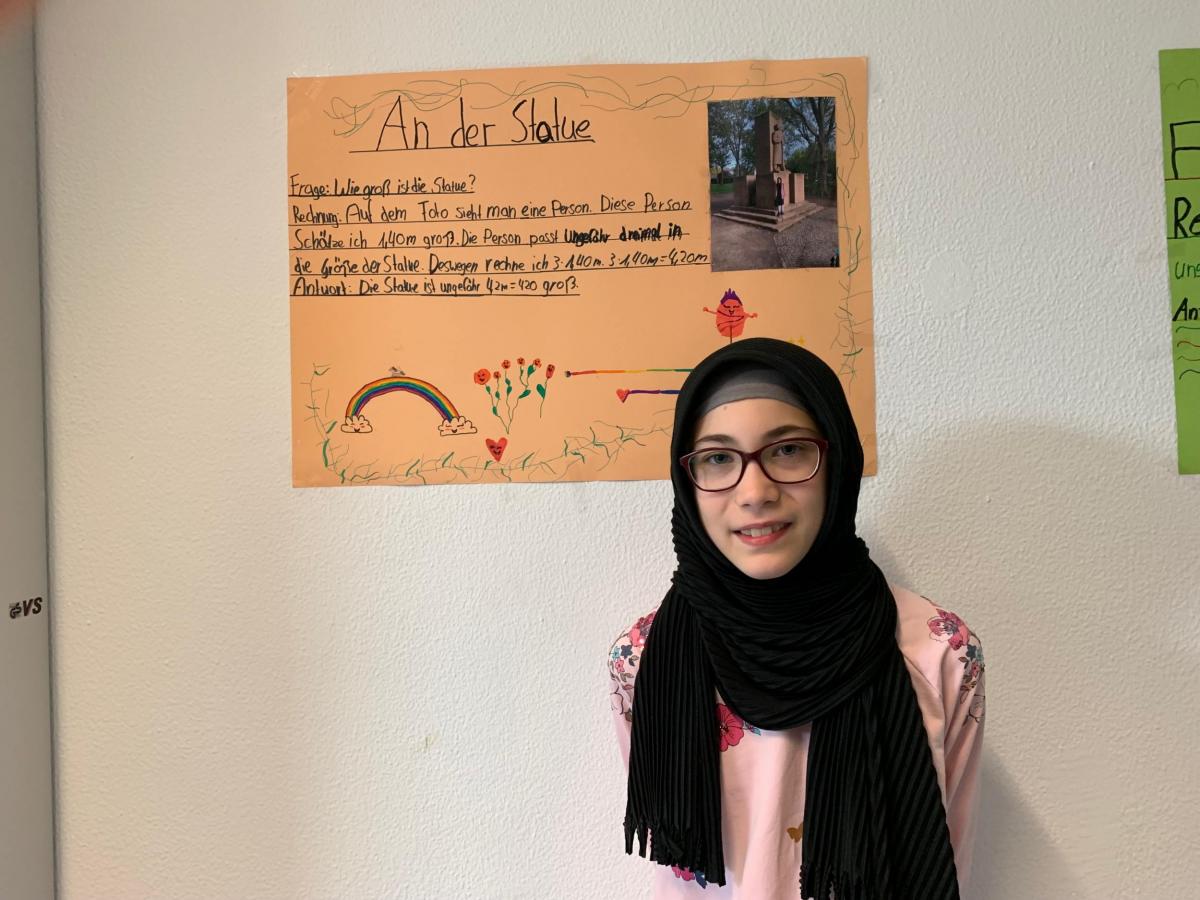 An der Statue
Frage: Wie groß ist die Statue?
Rechnung: Auf dem Foto sieht man eine Person. Diese Person
Schätze ich 1,40m groß. Die Person passt Ungefähr dreimal in
die Größe der Statue. Deswegen rechne ich 3·1,40m. 3·1,40m=4,20m
Antwort: Die Statue ist ungefähr 4,2m=420 groß.
GS VS
F
Re
uns
An